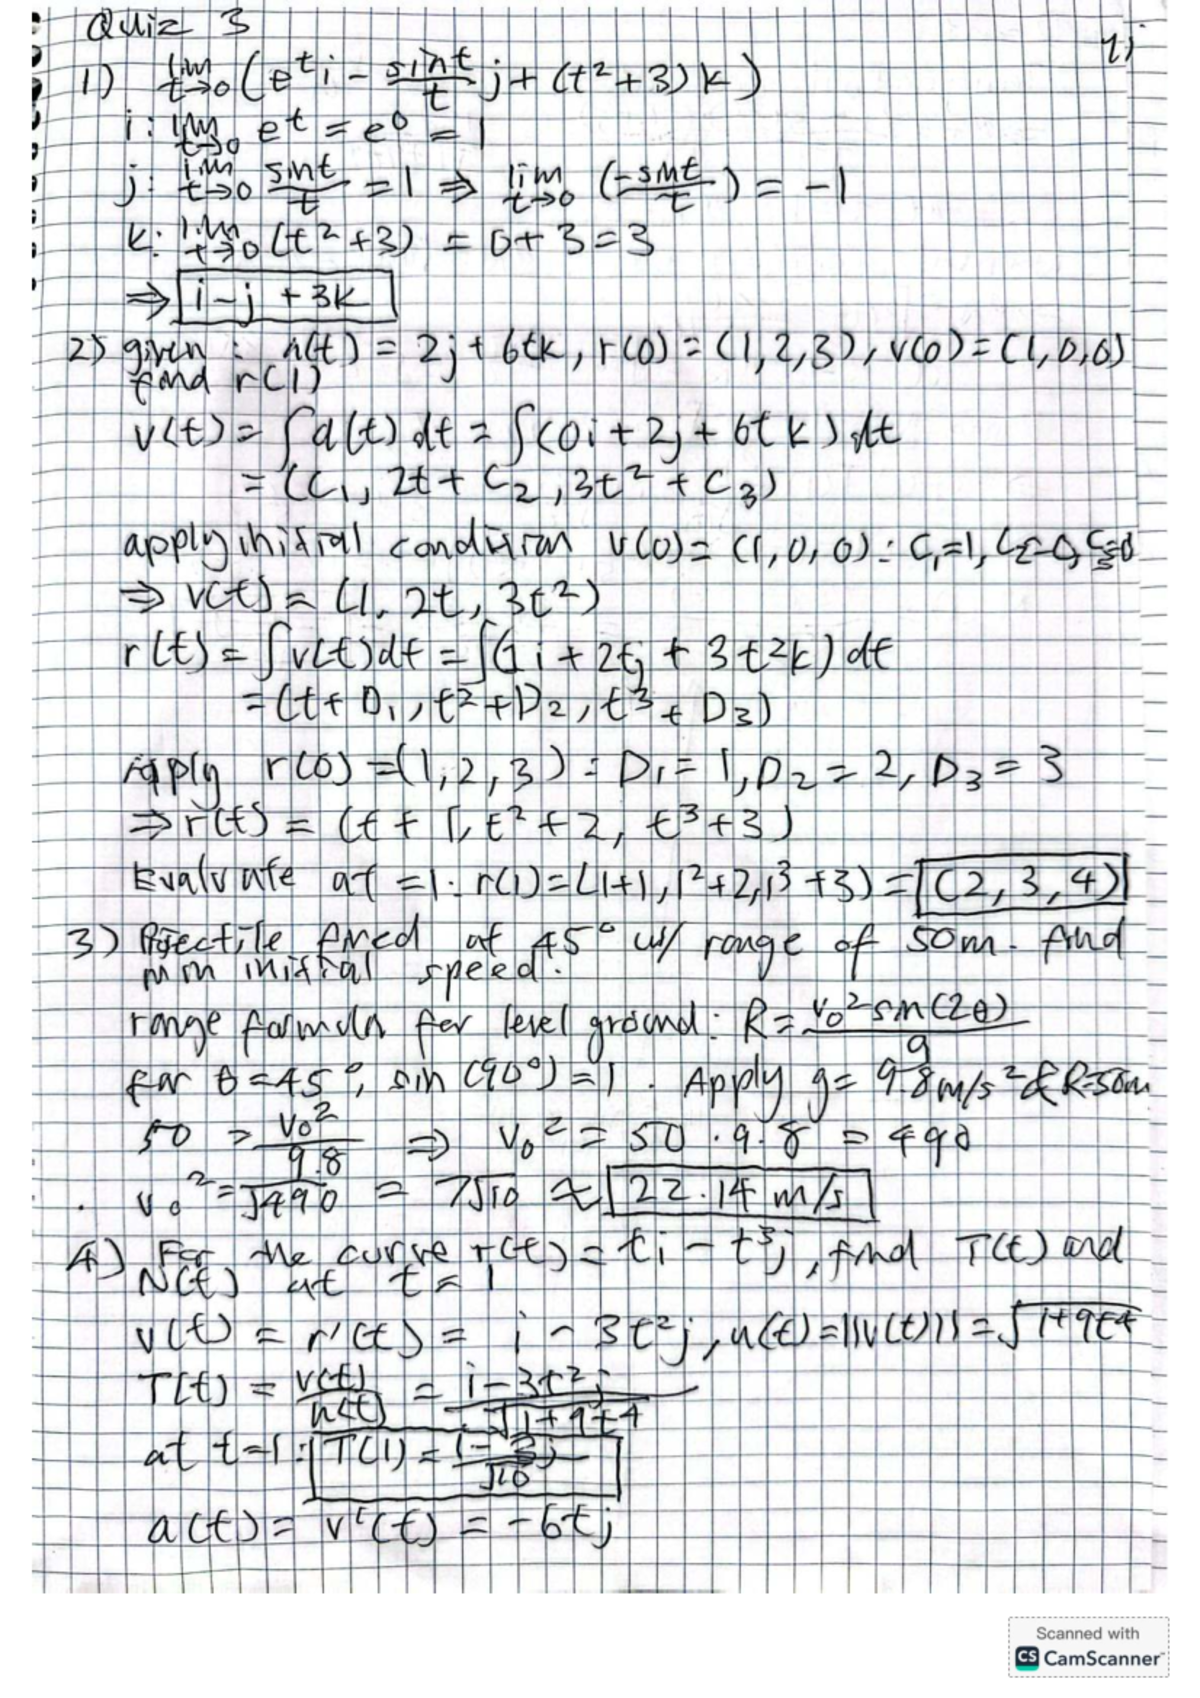 Quiz 3
1) lim t→0 (e^t i - sint/t j + (t² + 3) k)
i: lim t→0 e^t = e^0 = 1
j: lim t→0 sint/t = 1 ⇒ lim t→0 (-sint/t) = -1
k: lim t→0 (t² + 3) = 0 + 3 = 3
⇒ i - j + 3k
2) given: a(t) = 2j + 6tk, r(0) = (1,2,3), v(0) = (1,0,0)
find r(1)
v(t) = ∫a(t) dt = ∫(0i + 2j + 6t k) dt
= (C₁, 2t + C₂, 3t² + C₃)
apply initial condition v(0) = (1,0,0): C₁=1, C₂=0, C₃=0
⇒ v(t) = (1, 2t, 3t²)
r(t) = ∫v(t)dt = ∫(1i + 2tj + 3t²k) dt
= (t + D₁, t² + D₂, t³ + D₃)
Apply r(0) = (1,2,3): D₁ = 1, D₂ = 2, D₃ = 3
⇒ r(t) = (t + 1, t² + 2, t³ + 3)
Evaluate at = 1: r(1) = (1+1, 1²+2, 1³+3) = (2, 3, 4)
3) Projectile fired at 45° w/ range of 50m. find
min initial speed.
range formula for level ground: R = v₀² sin(2θ)/g
for θ = 45°, sin(90°) = 1. Apply g = 9.8 m/s² & R=50m
50 = v₀²/9.8 ⇒ v₀² = 50 · 9.8 = 490
v₀² = √490 = 7√10 ≈ 22.14 m/s
4) For the curve r(t) = ti - t³j, find T(t) and
N(t) at t = 1
v(t) = r'(t) = i - 3t²j, u(t) = ||v(t)|| = √1+9t⁴
T(t) = v(t)/u(t) = i - 3t²j/√1+9t⁴
at t=1: T(1) = i - 3j/√10
a(t) = v'(t) = -6tj
Scanned with
CS CamScanner